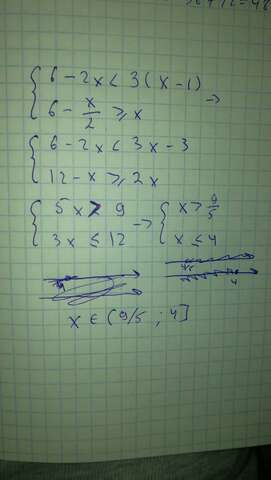 { 6 - 2x < 3(x - 1)
6 - x/2 ⩾ x →
{ 6 - 2x < 3x - 3
12 - x ⩾ 2x
{ 5x > 9 → { x > 9/5
3x ≤ 12 x ≤ 4
x ∈ (9/5 ; 4]